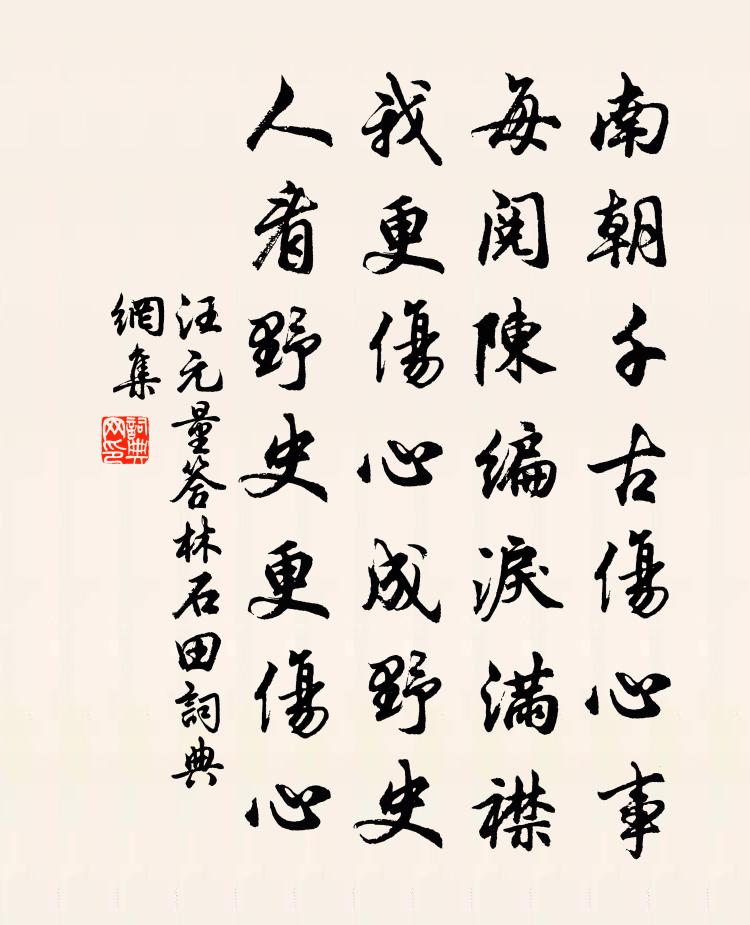 南朝千古傷心事
每閱陳編淚滿襟
我更傷心成野史
人看野史更傷心
汪元量答林石田詞典
網集
詞典
网印